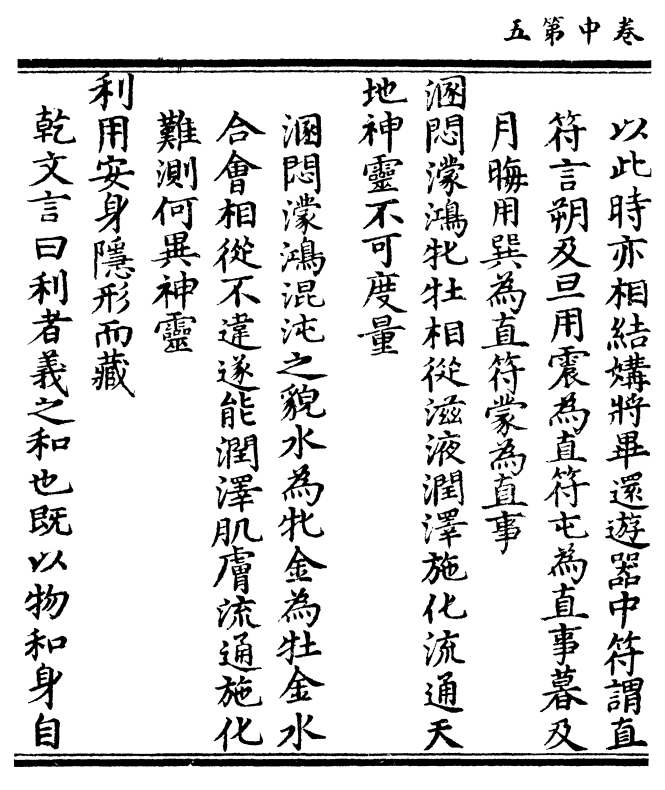 卷中第五
以此時亦相結媾將畢還遊器中符謂直
符言朔及旦用震為直符屯為直事暮及
月晦用巽為直符蒙為直事
溷悶濛鴻牝牡相從滋液潤澤施化流通天
地神靈不可度量
溷悶濛鴻混沌之貌水為牝金為牡金水
合會相從不違遂能潤澤肌膚流通施化
難測何異神靈
利用安身隱形而藏
乾文言曰利者義之和也既以物和身自